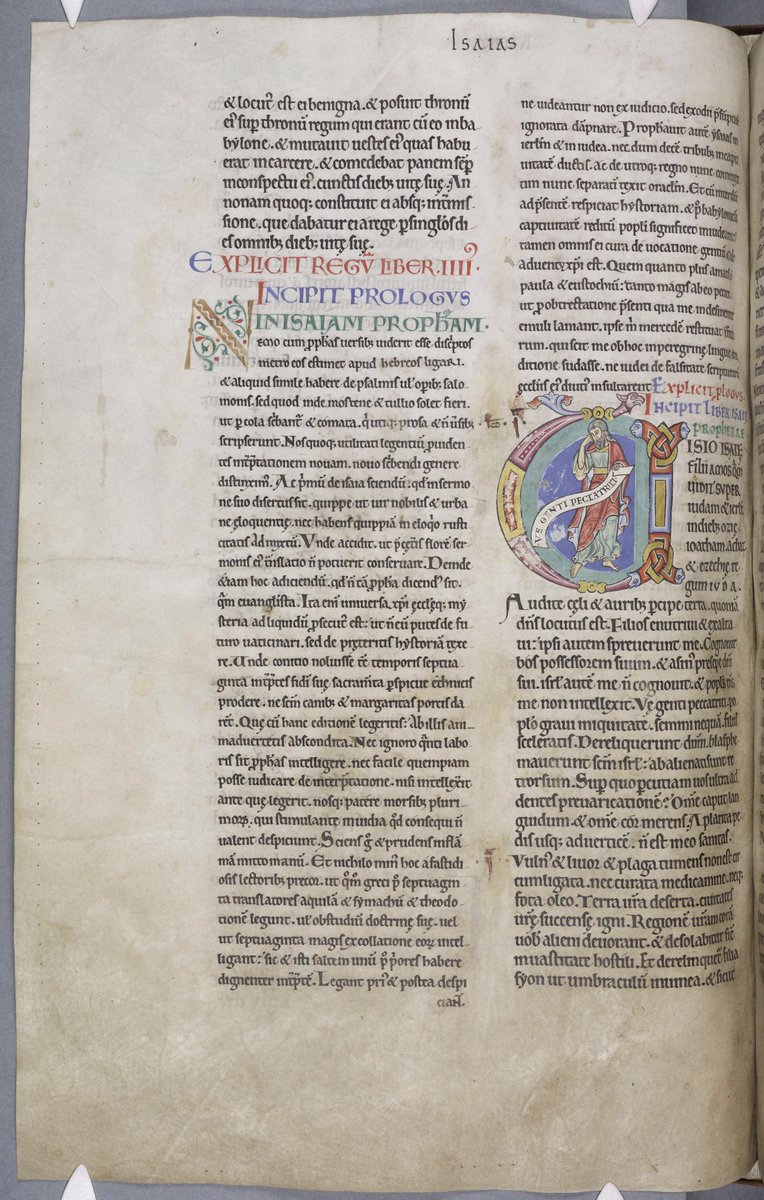 Isaias
& locut᷒ est ei benigna. & posuit thronū
ei᷒ sup̱ thronū regum qui erant cū eo in ba
bylone. & mutavit vestes ei᷒ quas habu
erat in carcere. & comedebat panem sēp̱
in conspectu ei᷒. cunctis dieb; uitę suę. An
nonam quoq; constituit ei absq; int̄mis
sione. que dabatur ei a rege p̱ singlōs di
es omnib; dieb; uitę suę.
EXPLICIT REGV̄ LIBER. IIII.
INCIPIT PROLOGVS
IN ISAIAM PROPH̄AM.
Nemo cum p̱ph̄as versib; uiderit esse disc̄ptos
metro eos estimet apud hebreos ligari.
& aliquid simile habere de psalmis ul̄ opib; salo
monis. sed quod in demostene & tullio solet fieri.
ut p̱ cola sc̄bant̄ & comata. q̇ utiq; prosa & n̄ uersib;
scripserunt. Nos quoq; utilitati legentiū p̱uiden
tes int̄p̄tationem novam. novo sc̄bendi genere
distinxim᷒. Ac p̄mū de isaia sciendū. qd̄ in sermo
ne suo disertus sit. quippe ut uir nobilis & urba
ne eloquentię. nec habens quippiā in eloq̇o rusti
citatis admixtū. Vnde accidit. ut p̄ cęt̄is florē ser
monis ei᷒ t̄nslatio n̄ potuerit conservare. Deinde
&iam hoc adiciendū. qd̄ n̄ tā p̱ph̄a dicend᷒ sit.
q̄m euanglīsta. Ita enī universa xp̄i ęcclęq; my
steria ad liquidū p̱secut᷒ est: ut n̄ eū putes de fu
turo vaticinari. sed de p̄teritis hystoriā texe
re. Vnde conitio noluisse tē temporis septua
ginta int̄p̄tes fidei suę sacram̄ta p̱spicue ethnicis
prodere. ne sc̄m canib; & margaritas porcis da
rēt. Quę cū hanc editionē legeritis: ab illis ani
madvertetis abscondita. Nec ignoro q̇nti labo
ris sit p̱ph̄as intelligere. nec facile quempiam
posse iudicare de interp̄tatione. nisi intellex̄it
ante quę legerit. nosq; patere morsib; pluri
morȝ. qui stimulante invidia qd̄ consequi n̄
valent despiciunt. Sciens ḡ & prudens in flā
mā mitto manū. Et nichilo min᷒ hoc a fastidi
osis lectorib; precor. ut q̊m̊ greci p᷒ septuagin
ta translatores aquilā & symachū & theodo
tionē legunt. ul̄ ob studiū doctrinę suę. vel
ut septuaginta magis ex collatione eorȝ intel
ligant: sic & isti saltem unū p᷒ p̱ores habere
dignenter int̄p̄tē. Legant pri᷒ & postea despi
ciant.
ne uideantur non ex iudicio. sed ex odii p̄sūptiōe
ignorata dāpnare. Prophavit autē ysaias in
ierlm̄ & in iudea. nec dum decē tribub; in capti
uitatē ductis. ac de utroq; regno nunc commix
tim nunc separatī texit oraclm̄. Et cū int̄dū
ad p̄sentē respiciat hystoriam. & p᷒ babylonicā
captiuitatē reditū popli significet in iudeam:
tamen omnis ei cura de uocatione gentiū & de
aduentu xp̄i est. Quem quanto plus amatis
paula & eustochiū: tanto magis ab eo petite
ut p̱ obtrectatione p̄senti qua me indesinent̄
emuli laniant. ipse m̄ mercedē restituat in futu
rum. qui scit me ob hoc in peregrinę linguę eru
ditione sudasse. ne iudei de falsitate scripturarū
ęcclīis ei᷒ diuti᷒ insultarent. EXPLICIT P̱LOGUS.
INCIPIT LIBER ISAIE
PROPHETAE
VE GENTI PECCATRICI
VISIO ISAIE
FILII AMOS QVĀ
VIDIT SVPER
iudam & ierlm̄
in dieb; ozię
ioatham. achaz
& ezechię re
gum IVDA.
Audite cęli & auribus p̱cipe terra. quoniā
dn̄s locutus est. Filios enutrivi & exalta
vi: ipsi autem spreverunt me. Cognovit
bos possessorem suum. & asin᷒ presepe dn̄i
sui. isrl̄ autē me n̄ cognovit. & popl᷒s m̄s
me non intellexit. Vę genti peccatrici. po
plō gravi iniquitate. semini nequā. filiis
sceleratis. Dereliquerunt dnm̄. blasphe
maverunt sc̄m isrl̄: abalienati sunt re
trorsum. Sup̱ quo p̱cutiam vos ultra ad
dentes prevaricationē? Om̄e caput lan
guidum. & om̄e cor merens. A planta pe
dis usq; ad verticē. n̄ est in eo sanitas.
Vuln᷒ & livor & plaga tumens non est cir
cumligata. nec curata medicamine. neq;
fota oleo. Terra ur̄a deserta. civitates
ur̄ę succensę igni. Regionē ur̄am corā
uob̄ alieni devorant. & desolabitur sic̄
in vastitate hostili. Et derelinquet᷒ filia
syon ut umbraculū in uinea. & sicut